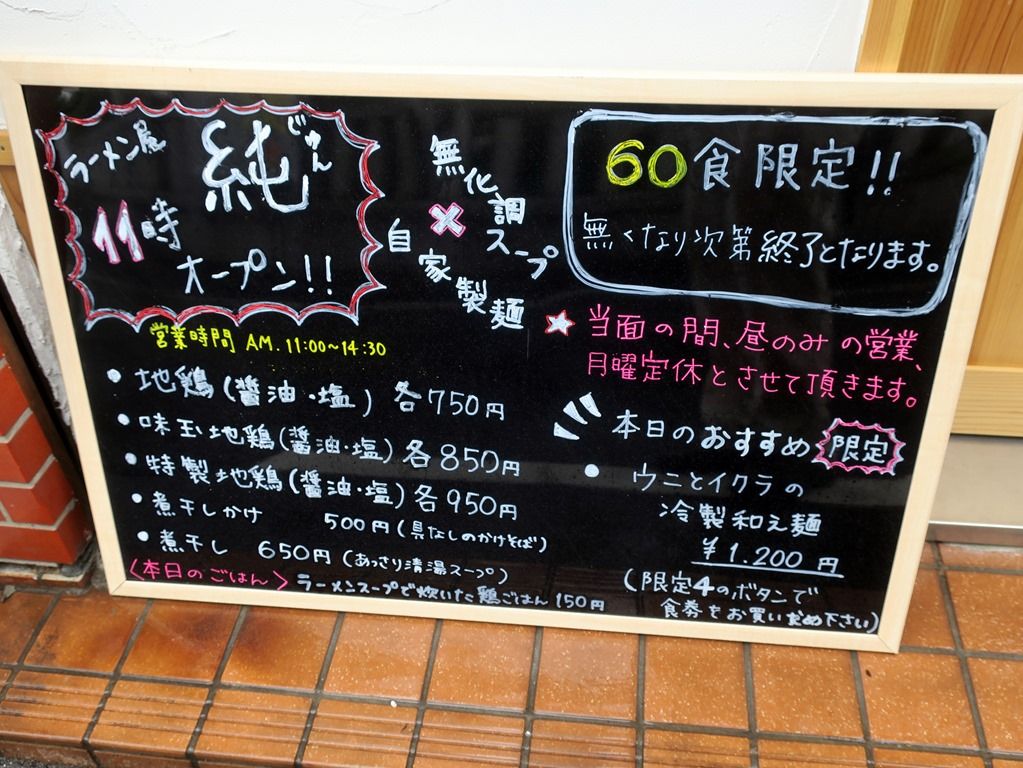 ラーメン屋 純 じゅん
11時
オープン!!
無化調スープ
×
自家製麺
60食限定!!
無くなり次第終了となります。
営業時間 AM. 11:00~14:30
• 地鶏(醤油・塩) 各750円
• 味玉地鶏(醤油・塩) 各850円
• 特製地鶏(醤油・塩) 各950円
• 煮干しかけ 500円(具なしのかけそば)
• 煮干し 650円 (あっさり清湯スープ)
<本日のごはん> ラーメンスープで炊いた鶏ごはん 150円
★ 当面の間、昼のみの営業、
月曜定休とさせて頂きます。
本日のおすすめ 限定
• ウニとイクラの
冷製和え麺
¥1.200 円
(限定4のボタンで
食券をお買い求め下さい)